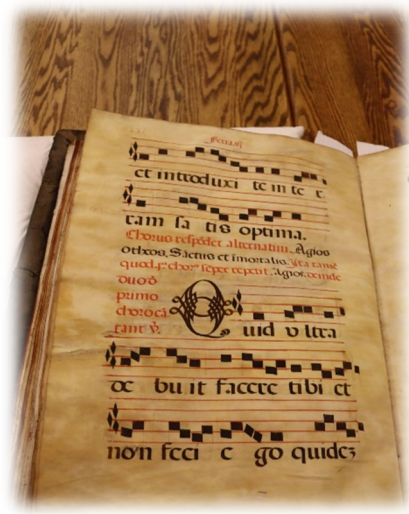 Feria.vj
et introduxi te in te r
ram sa tis optima.
Chorus respōdet alternatim. Agios
otheos, Sāctus et īmortalis. Ita tamē
quod pº chorº sēper repetit. Agios. deinde
duo ð
primo
choro cā
tant ℣.
Quid vltra
de bu it facere tibi et
non feci e go quidez